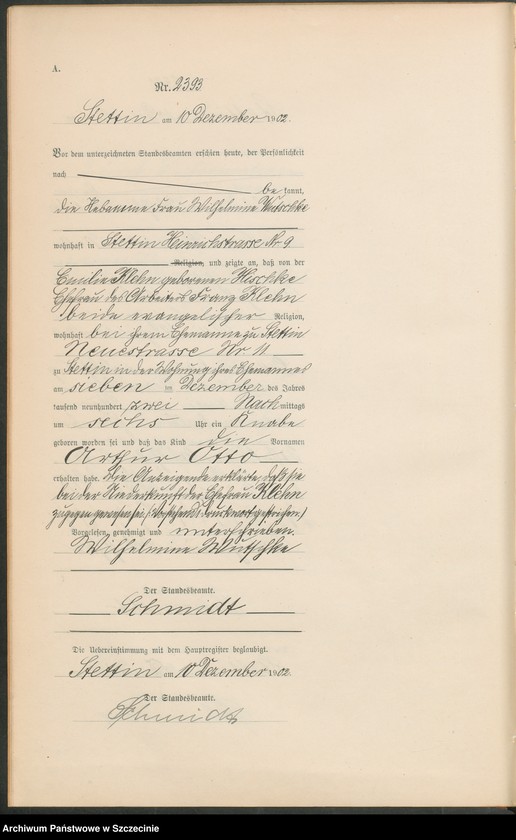 A.
Nr. 2393
Stettin am 10 Dezember 1902.
Vor dem unterzeichneten Standesbeamten erschien heute, der Persönlichkeit
nach
be kannt,
die Hebamme Frau Wilhelmine Wutschke
wohnhaft in Stettin Heinrichstrasse Nr 9
Religion, und zeigte an, daß von der
Emilie Klehn geborenen Hischke
Ehefrau des Arbeiters Franz Klehn
beide evangelischer Religion,
wohnhaft bei ihrem Ehemanne zu Stettin
Neuestrasse Nr 11
zu Stettin in der Wohnung ihres Ehemannes
am sieben ten Dezember des Jahres
tausend neunhundert zwei Nach mittags
um sechs Uhr ein Knabe
geboren worden sei und daß das Kind die Vornamen
Arthur Otto
erhalten habe. Die Anzeigende erklärte, daß sie
bei der Niederkunft der Ehefrau Klehn
zugegen gewesen sei. (Vorstehend 1 Druckwort gestrichen.)
Vorgelesen, genehmigt und unterschrieben.
Wilhelmine Wutschke
Der Standesbeamte.
Schmidt
Die Uebereinstimmung mit dem Hauptregister beglaubigt.
Stettin am 10 Dezember 1902
Der Standesbeamte.
Schmidt
Archiwum Państwowe w Szczecinie